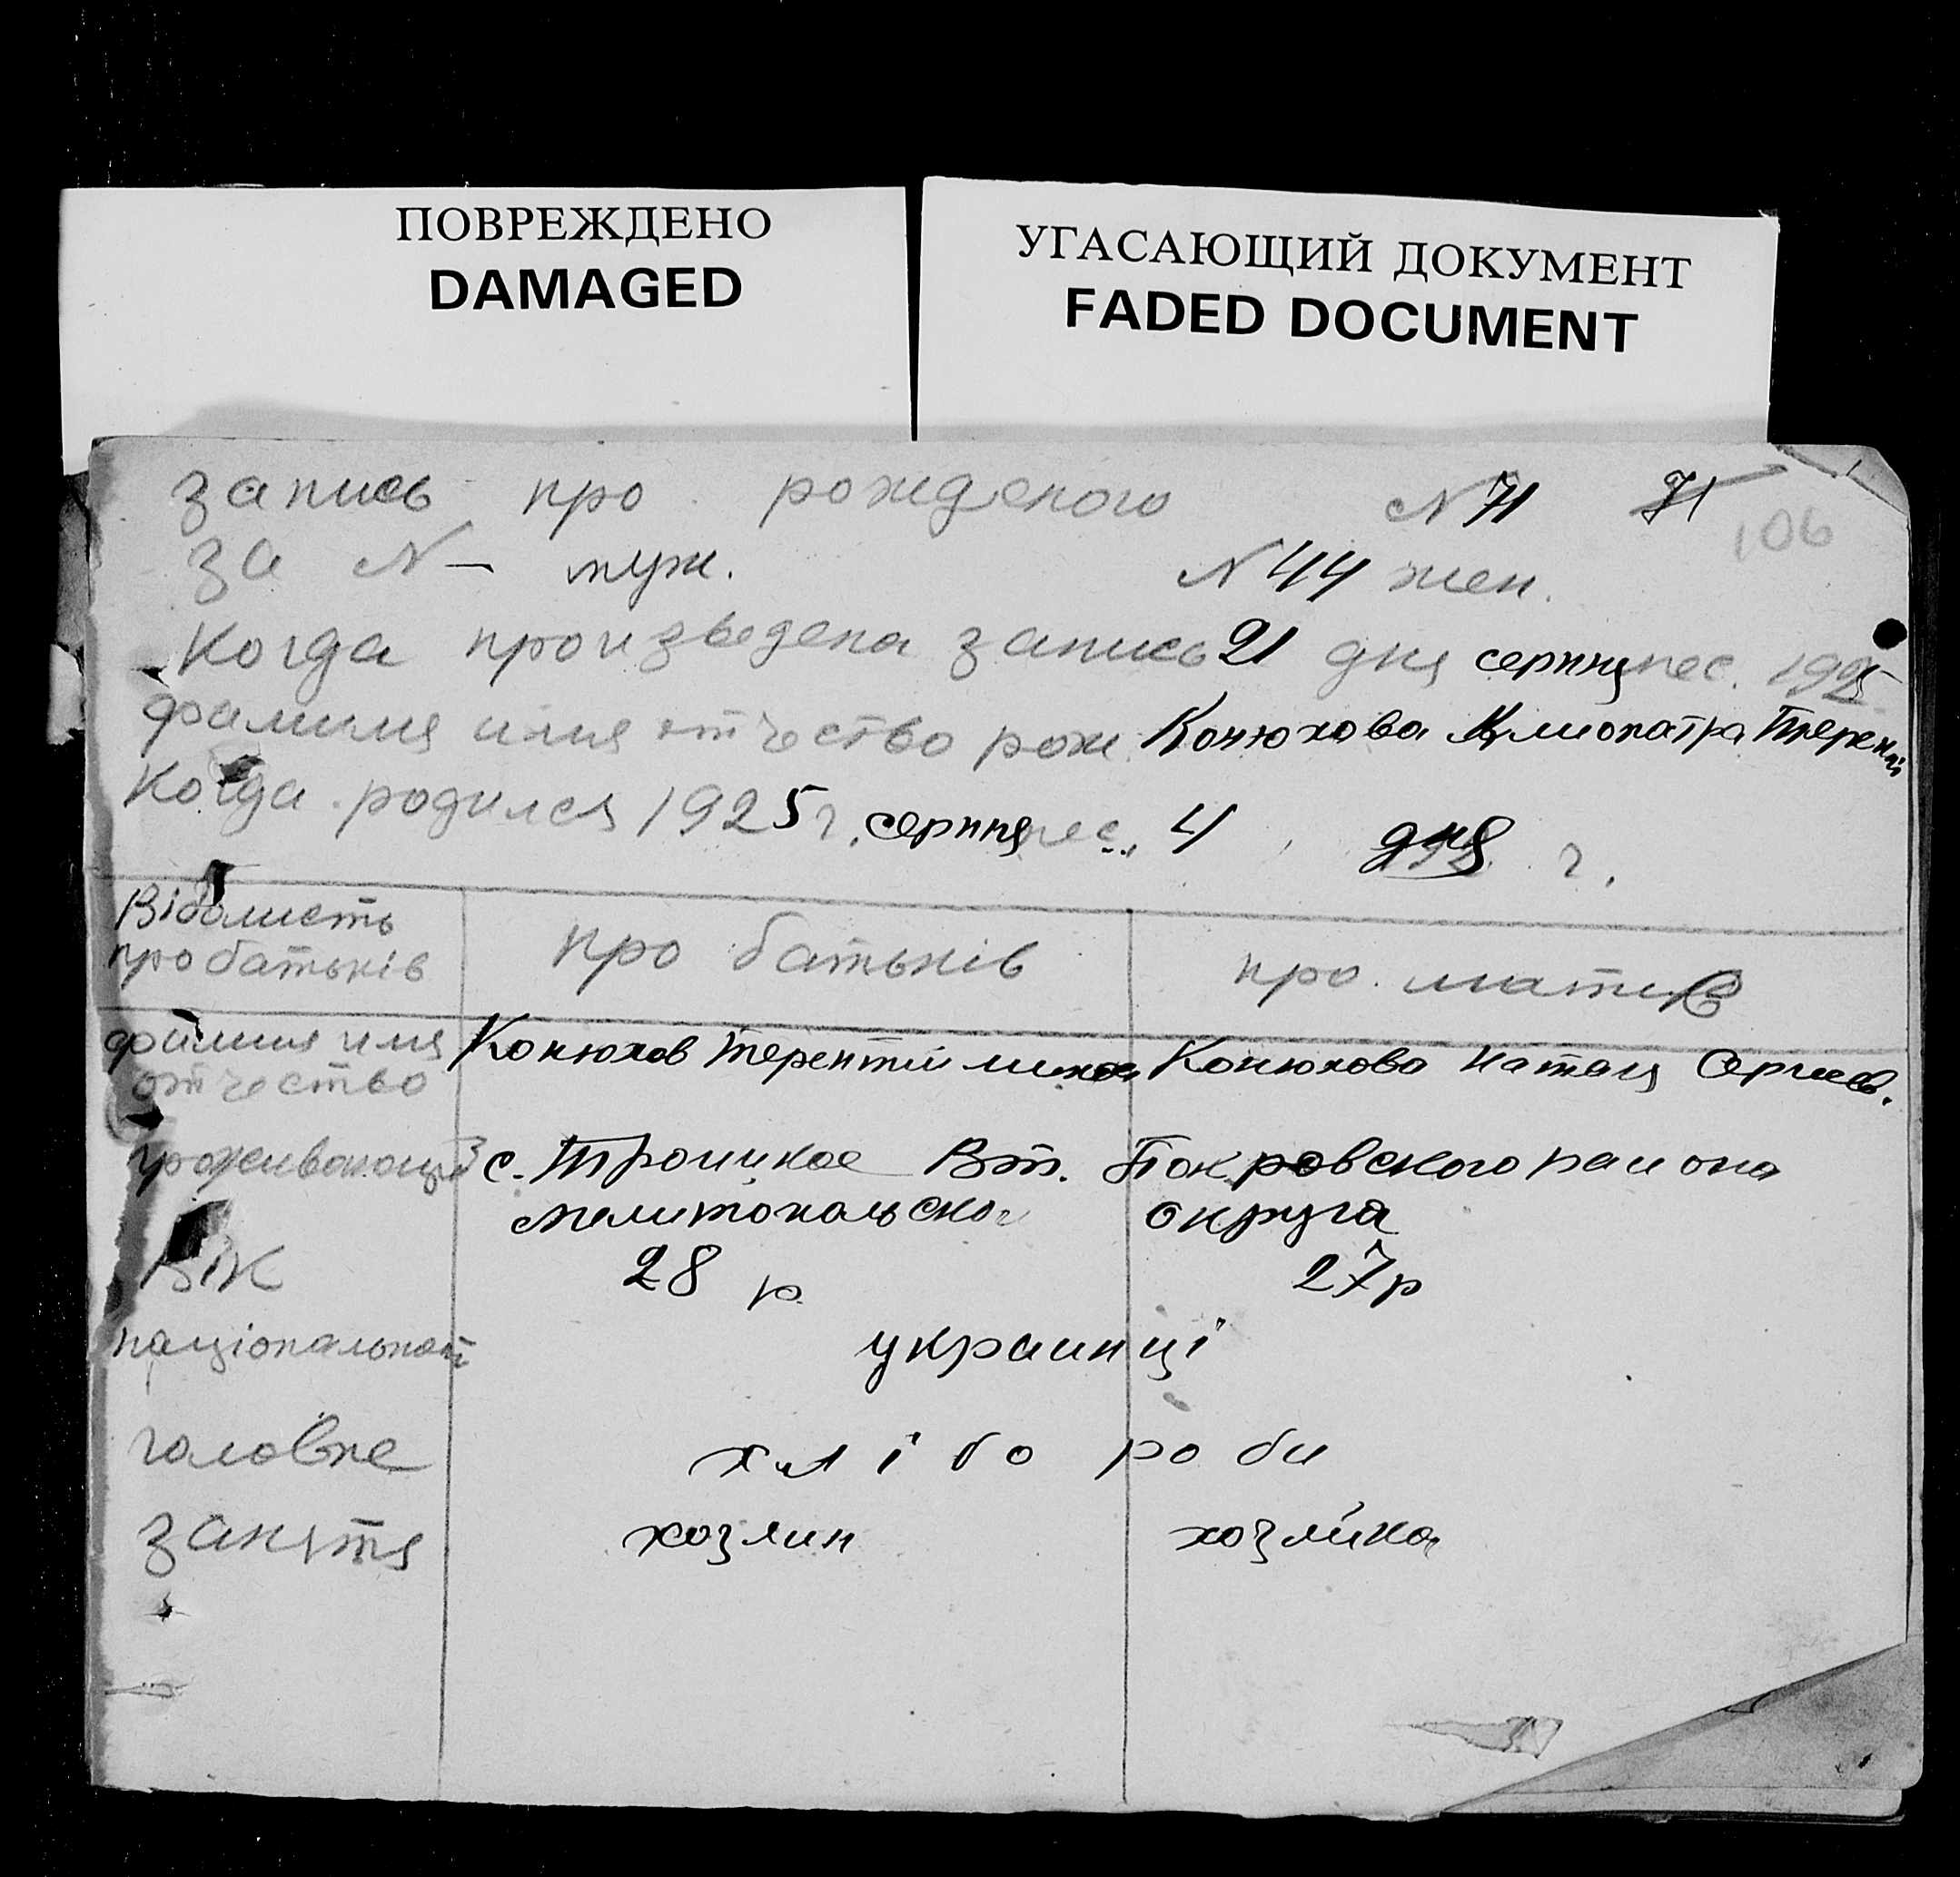 ПОВРЕЖДЕНО
DAMAGED
УГАСАЮЩИЙ ДОКУМЕНТ
FADED DOCUMENT
запись про рожденого N 71 71
106
за N — муж. N 44 жен.
Когда произведена запись 21 дня серпня мес. 1925
фамилия имя отчество рож. Конюхова Клиопатра Терент
Когда родился 1925 г. серпня мес. 4 дня г.
Відомисть про батьків
про батьків
про матирів
фамилия имя отчество
Конюхов Терентий Михаи
Конюхова Наталя Сергиев.
проживающий
с. Троицкое Вт. Покровского раиона
мелитопольског округа
Вік 28 р 27 р
національност украинці
головне хлібороби
занятя хозяин хозяйка